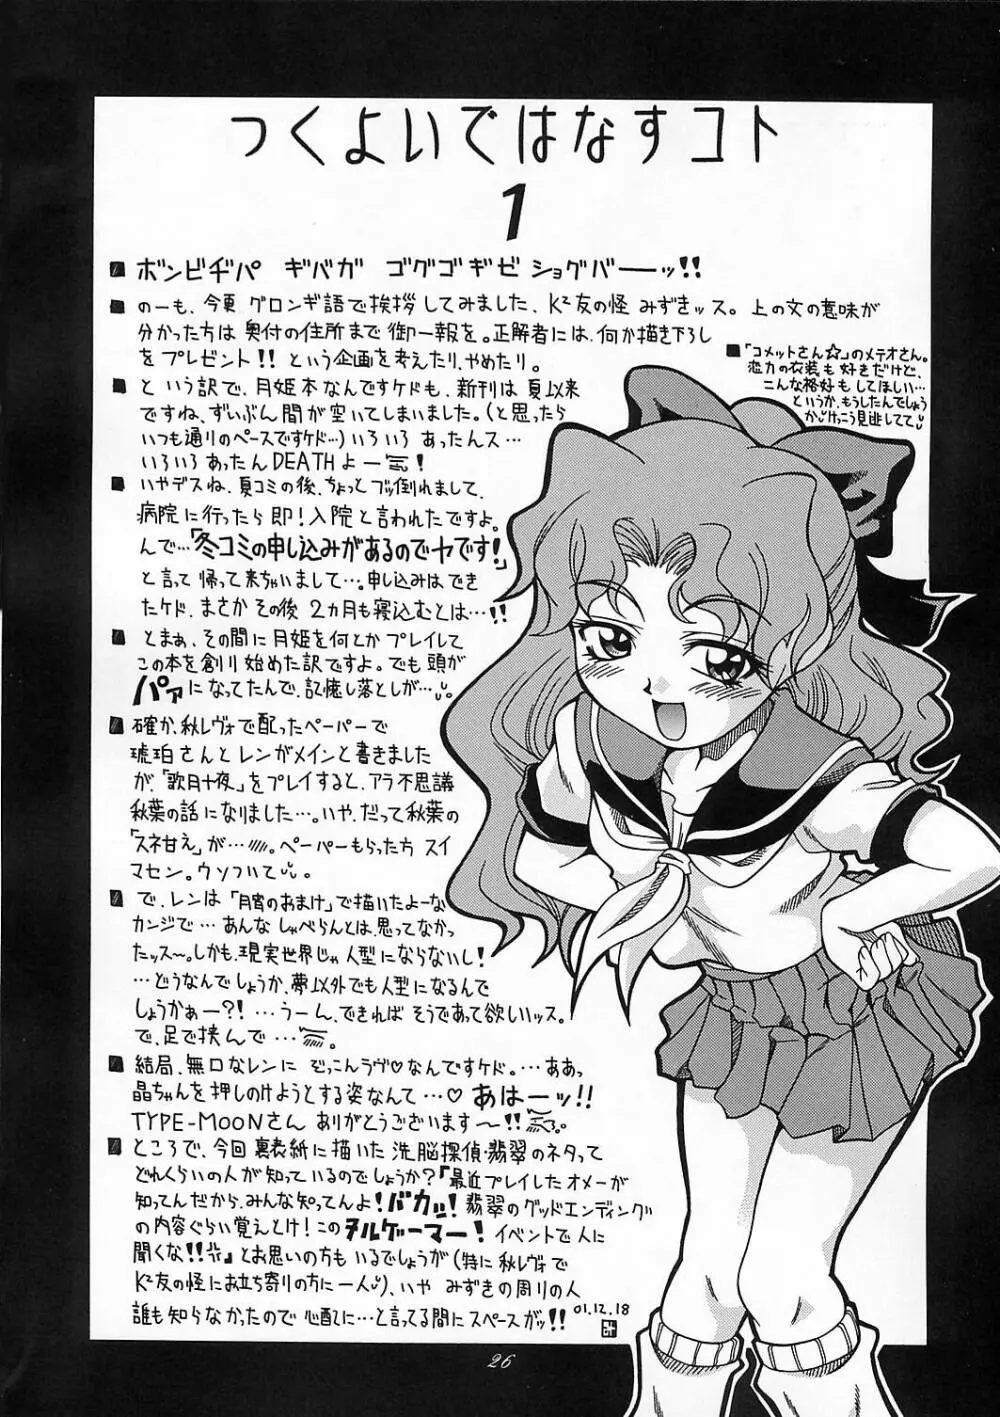 つくよいではなすコト
1
■ ボンビヂパ ギバガ ゴグゴギゼ ショグバーーッ!!
■ のーも、今夏 グロンギ語で挨拶 してみました、K²友の怪 みずきッス。上の文の意味が
分かった方は 奥付の住所まで 御一報を。正解者には、何か描き下ろし
をプレゼント!! という企画を考えたり、やめたり。
■ と いう訳で、月姫本なんですケドも、新刊は 夏以来
ですね、ずいぶん間が空いてしまいました。(と思ったら
いつも通りのペースですケド…)いろいろ あったんス…
いろいろあったんDEATHよー!
■ いやデスね、夏コミの後、ちょっとブッ倒れまして、
病院に行ったら即!入院と言われたですよ。
んで…「冬コミの申し込みがあるのでヤです!」
と言って 帰って来ちゃいまして…。申し込みはでき
たケド、まさか その後 2カ月も寝込むとは…!!
■ とまぁ、その間に月姫を何とか プレイして
この本を創り始めた訳ですよ。でも頭が
パァになってたんで、記憶し落としが…
■ 確か、秋レヴォで配ったペーパーで
琥珀さんとレンがメインと書きました
が、「歌月十夜」をプレイすると、アラ不思議
秋葉の話になりました…。いや、だって秋葉の
「スネ甘え」が…。ペーパーもらった方 スイ
マセン。ウソついて。
■ で、レンは「月宵のあまけ」で描いたよーな
カンジで… あんな しゃべらんとは、思ってなかっ
たッス～。しかも、現実世界じゃ 人型にならないし!
…どうなんでしょうか、夢以外でも人型になるんで
しょうかぁー?!…うーん、できれば そうであって欲しいッス。
で、足で挟んで…。
■ 結局、無口なレンに ぞっこんラヴ♡なんですケド。…ああっ
晶ちゃんを押しのけようとする姿なんて…♡ あはーッ!!
TYPE-MOONさん ありがとうございます～!!
■ ところで、今回 裏表紙に描いた 洗脳探偵・翡翠のネタって
どれくらいの人が知って いるのでしょうか?「最近プレイしたオメーが
知ってんだから、みんな知ってんよ!バカッ! 翡翠のグッドエンディング
の内容ぐらい覚えとけ!この ヌルゲーマー! イベントで人に
聞くな!!』とお思いの方も いるでしょうが(特に 秋レヴォで
K²友の怪にお立ち寄りの方に一人)、いや みずきの周りの人
誰も知らなかったので 心配に…と言ってる間に スペースがッ!!
01.12.18
み
■「コメットさん☆」のメテオさん。
恋力の衣装も 好きだけど、
こんな格好も してほしい…
というか、もうしたんでしょう
か、けっこう見逃してて
26